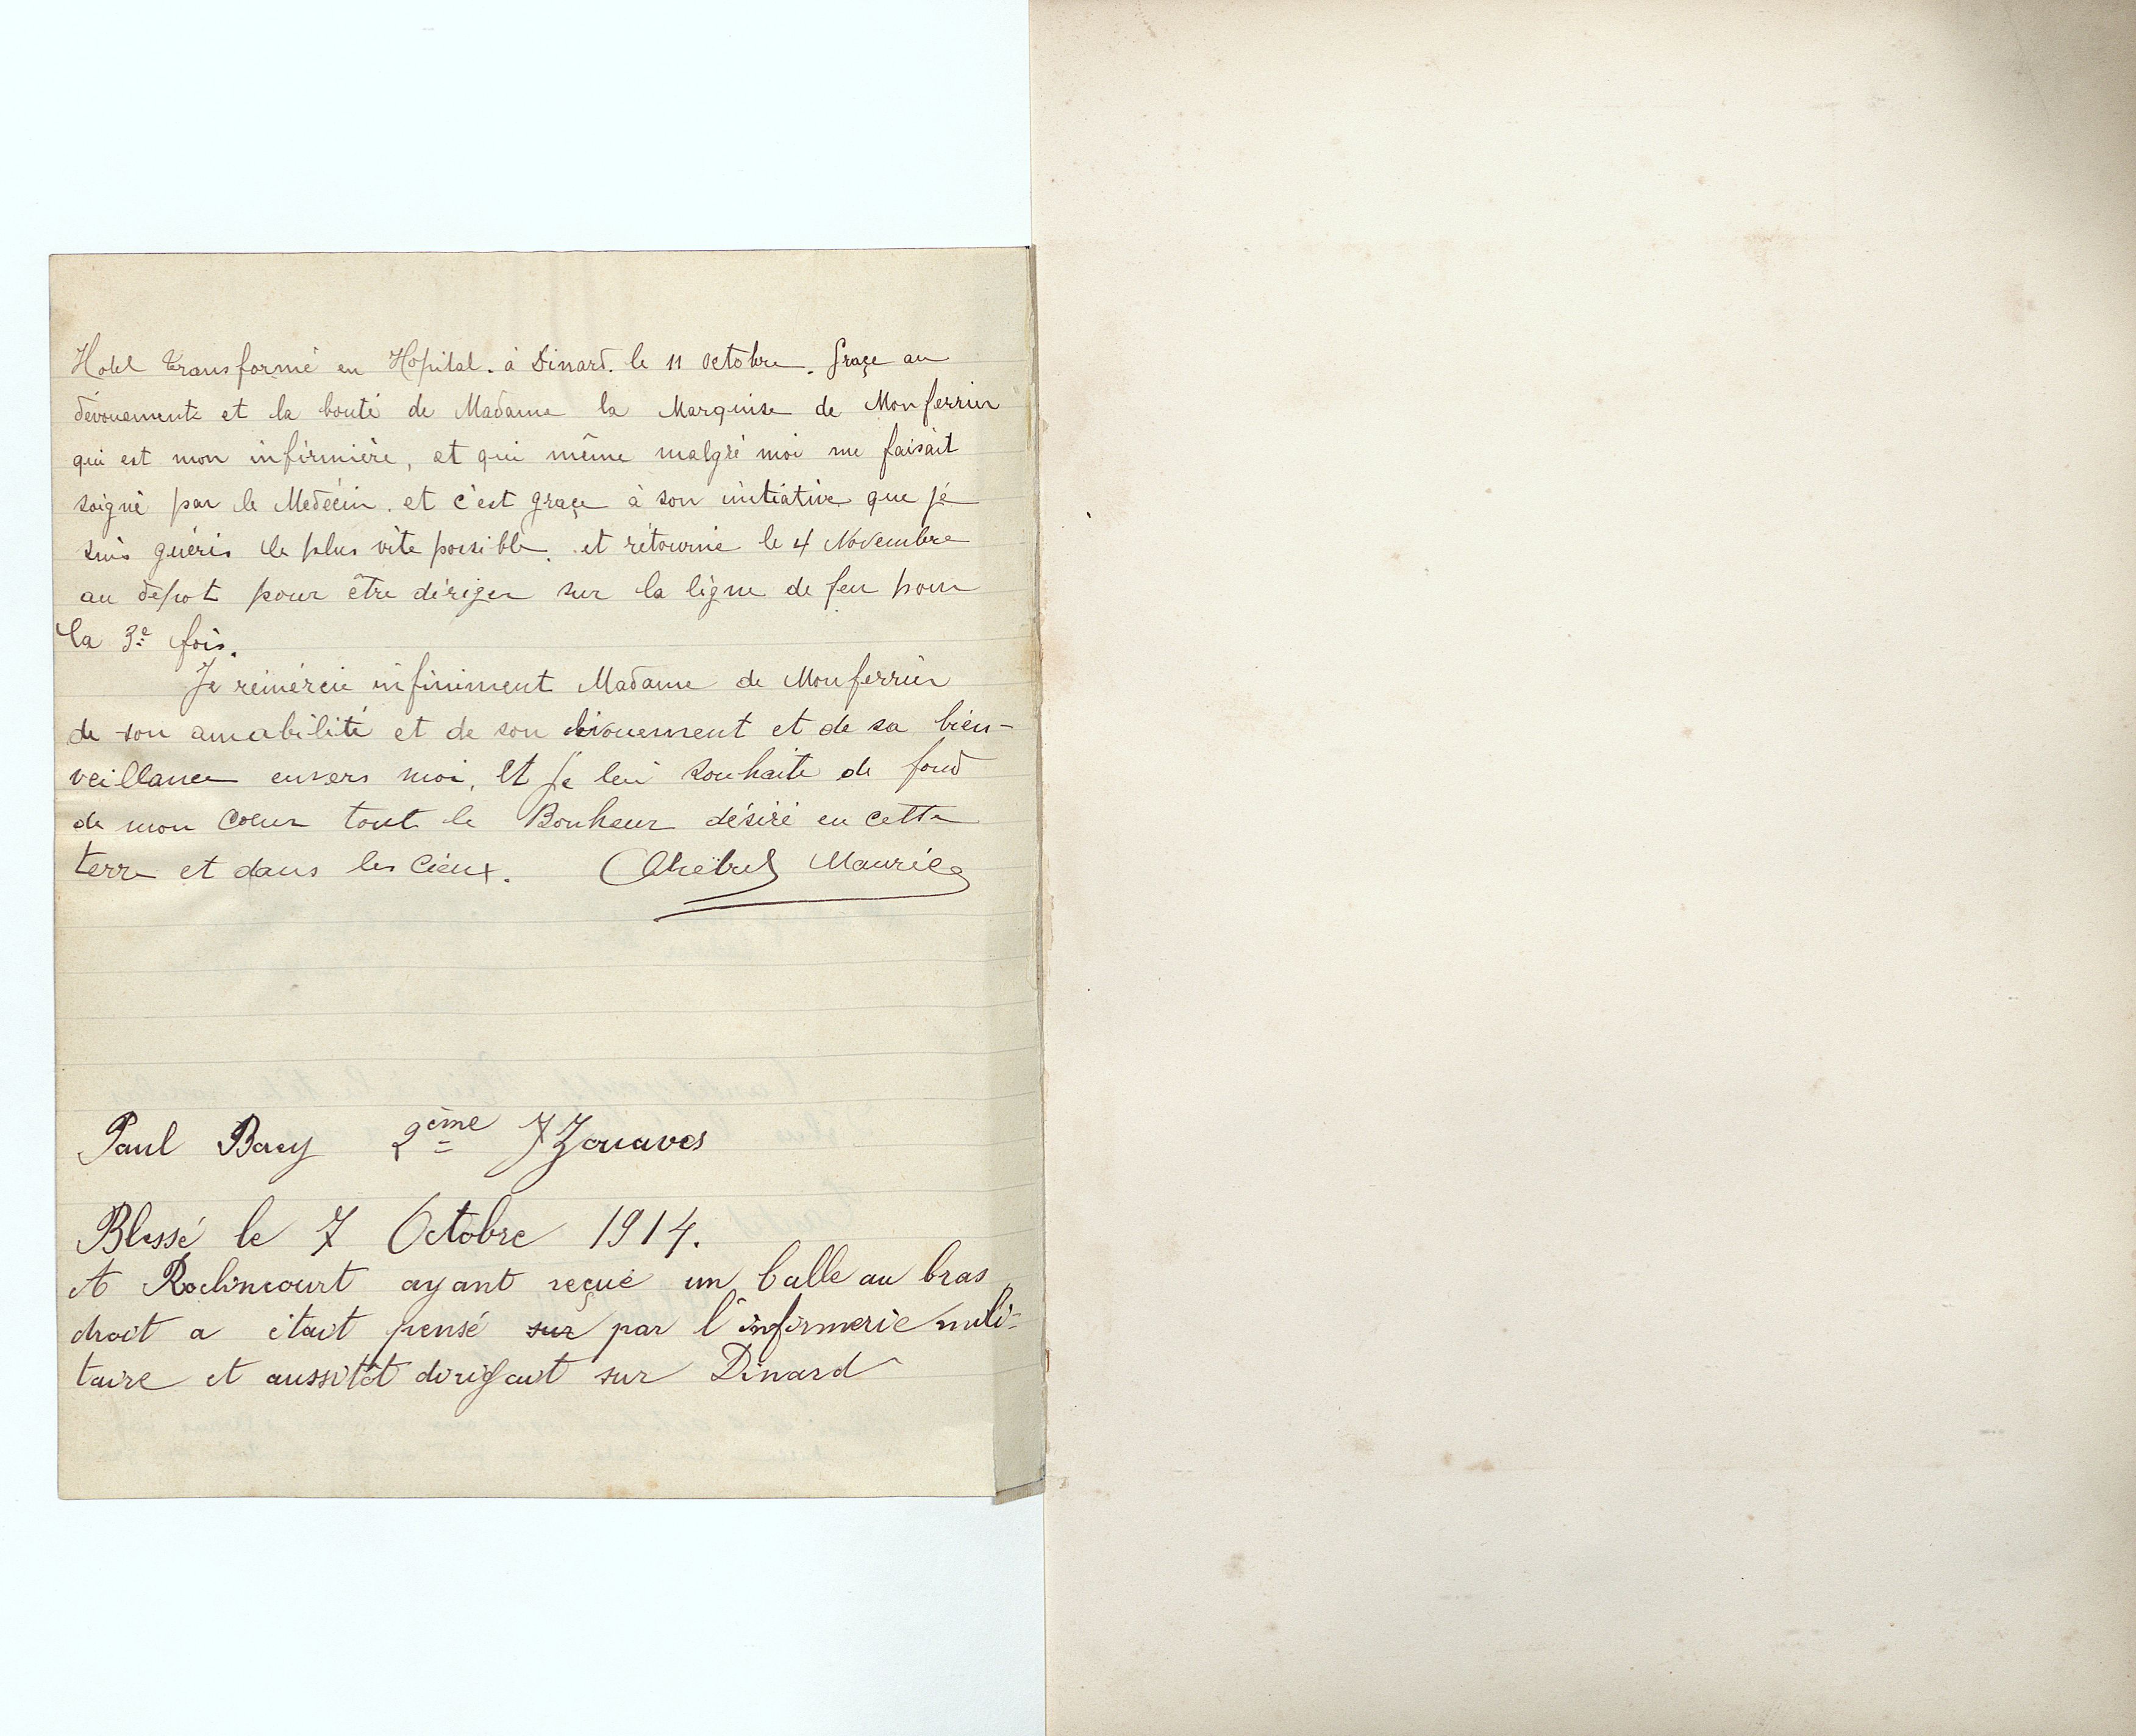 Hotel transformé en Hôpital. à Dinard. le 11 octobre. Graçe au
dévouements et la bonté de Madame la Marquise de Monferrier
qui est mon infirmière, et qui même malgré moi me faisait
soigné par le Medécin. et c'est graçe à son initiative que jé
suis guéris le plus vite possible. et rétourné le 4 Novembre
au dépot pour être diriger sur la ligne de feu pour
la 3e fois.
Je rémércie infiniment Madame de Monferrier
de son amabilité et de son dévouement et de sa bien-
veillance envers moi, Et je lui souhaite de fond
de mon coeur tout le Bonheur désiré en cette
terre et dans les Cieux. Maurice
Paul 2ème Zouaves
Blessé le 7 Octobre 1914.
A Roclincourt ayant reçue un balle au bras
droit a était pensé sur par l'infirmerie mili-
taire et aussitôt dirigait sur Dinard